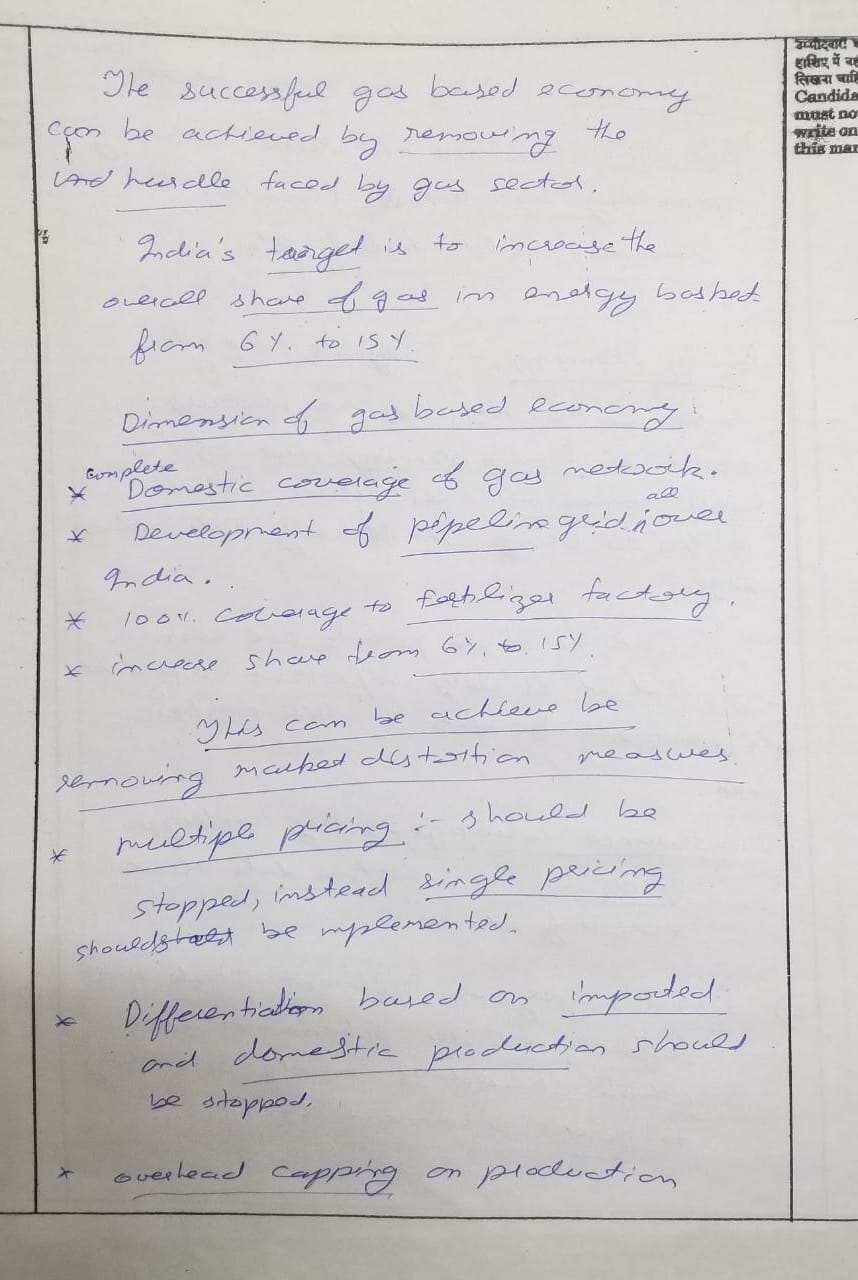 The successful gas based economy
can be achieved by removing the
hurdle faced by gas sector.
India's target is to increase the
overall share of gas in energy basket
from 6%. to 15%.
Dimension of gas based economy
complete
* Domestic coverage of gas network.
all
* Development of pipeline grid over
India.
* 100%. coverage to fertilizer factory.
* increase share from 6%. to. 15%.
This can be achieve be
removing market distortion measures.
* multiple pricing :- should be
stopped, instead single pricing
should be mplemented.
* Differentiation based on imported
and domestic production should
be stopped.
* overhead capping on production
उम्मीदवारों
हाशिए में
लिखना
Candida
must no
write on
this mar